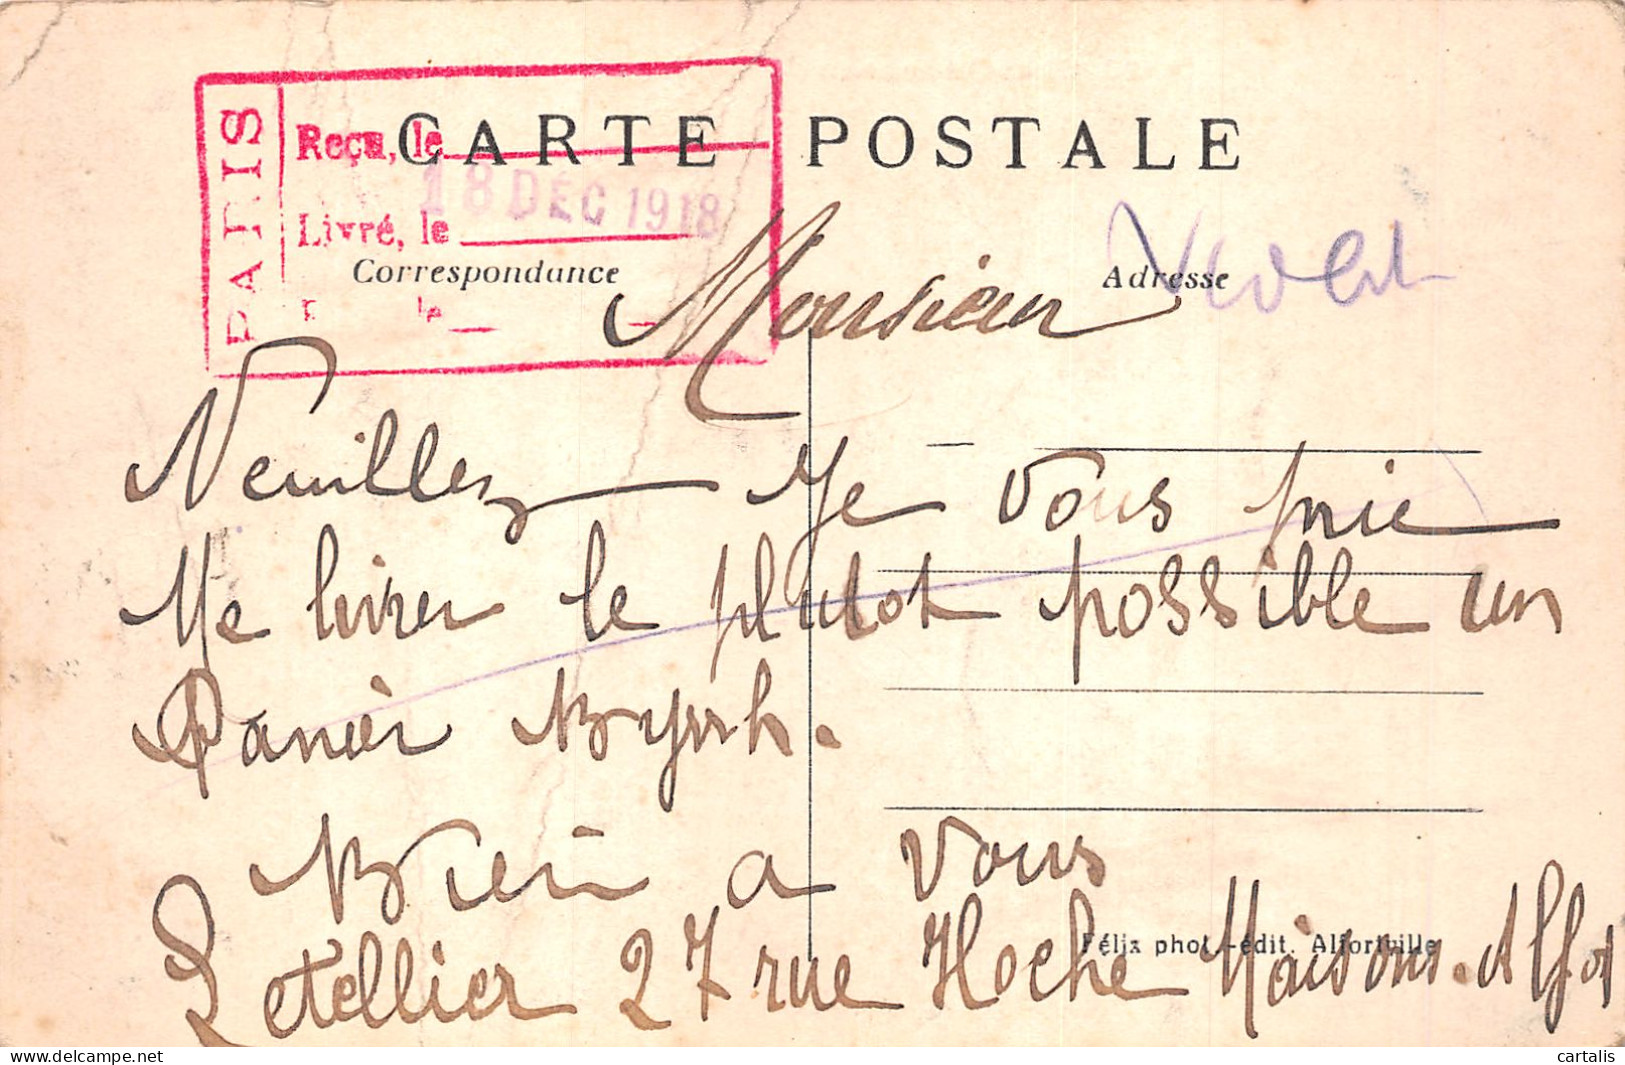 CARTE POSTALE
PARIS
Reçu, le
18 DÉC 1918
Livré, le
le
Correspondance
Adresse
Monsieur
Veuillez Je vous prie
Me livrer le plutot possible un
Panier Byrrh.
Bien a vous
Letellier 27 rue Hoche Maisons-Alfort
Félix phot.-édit. Alfortville
cartalis